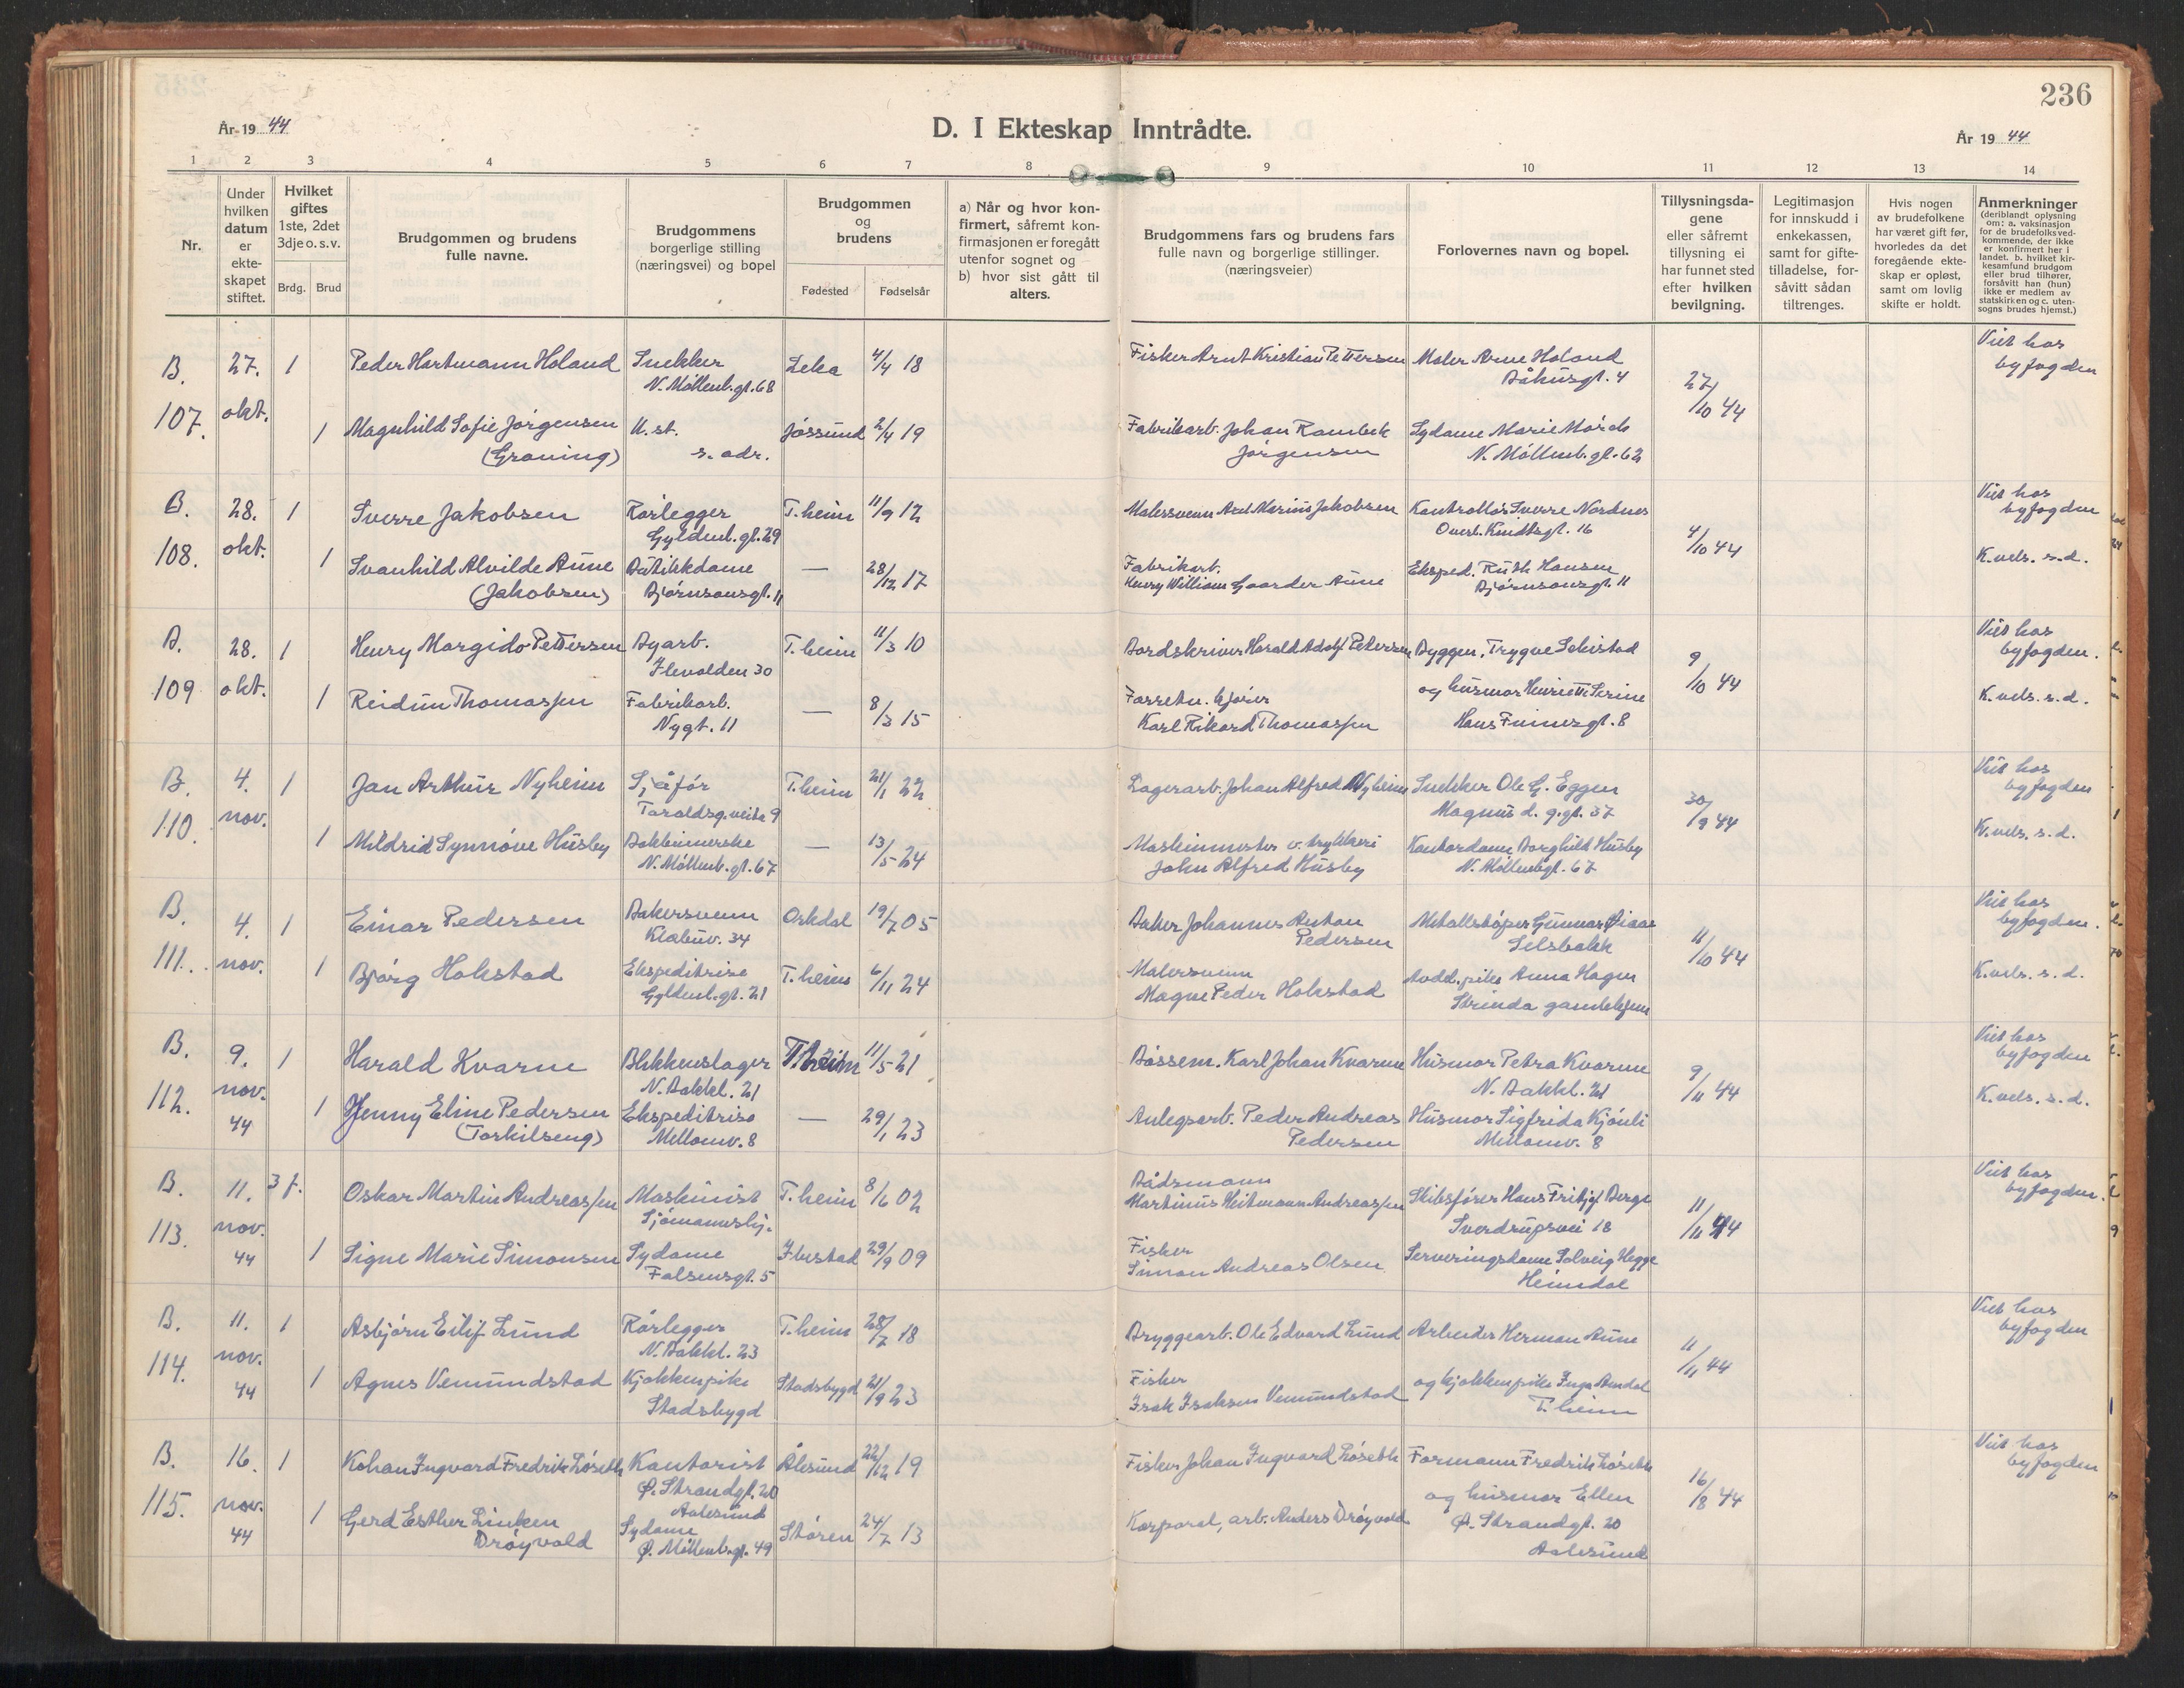 236
År 19 44
D. I Ekteskap Inntrådte.
År 19 44
1 2 3 4 5 6 7 8 9 10 11 12 13 14
Nr.
Under hvilken datum er ekte-skapet stiftet.
Hvilket giftes 1ste, 2det 3dje o. s. v.
Brdg. Brud
Brudgommen og brudens fulle navne.
Brudgommens borgerlige stilling (næringsvei) og bopel
Brudgommen og brudens
Fødested Fødselsår
a) Når og hvor kon-firmert, såfremt kon-firmasjonen er foregått utenfor sognet og
b) hvor sist gått til alters.
Brudgommens fars og brudens fars fulle navn og borgerlige stillinger. (næringsveier)
Forlovernes navn og bopel.
Tillysningsda-gene eller såfremt tillysning ei har funnet sted efter hvilken bevilgning.
Legitimasjon for innskudd i enkekassen, samt for gifte-tilladelse, for-såvitt sådan tiltrenges.
Hvis nogen av brudefolkene har været gift før, hvorledes da det foregående ekte-skap er opløst, samt om lovlig skifte er holdt.
Anmerkninger (deriblandt oplysning om: a. vaksinasjon for de brudefolks ved-kommende, der ikke er konfirmert her i landet. b. hvilket kir-kesamfund brudgom eller brud tilhører, forsåvitt han (hun) ikke er medlem av statskirken og c. uten-sogns brudes hjemst.)
B. 27. 1 Peder Hartmann Holand Snekker Leka 4/4 18 Fisker Arnt Kristian Pettersen Maler Arne Holand Viet hos
N. Möllenb. gt. 68 Båhusgt. 4 27/10 44 byfogden
107. okt. 1 Magnhild Sofie Jørgensen U. st. Jøssund 2/4 19 Fabrikarb. Johan Rambek Sydame Marie Mörch
(Groning) s. adr. Jørgensen N. Möllenb. gt. 62
B. 28. 1 Sverre Jakobsen Rørlegger T.heim 11/9 12 Malersvenn Axel Marius Jakobsen Kontrollør Sverre Nordnes Viet hos
Gyldenl. gt. 29 Overl. Knudtsgt. 16 4/10 44 byfogden
108. okt. 1 Svanhild Alvilde Aune Butikkdame — 28/12 17 Fabrikarb. Eksped. Ruth Hansen K. vels. s. d.
(Jakobsen) Bjørnsonsgt. 11 Henry William Gaarder Aune Bjørnsonsgt. 11
B. 28. 1 Henry Margido Pettersen Byarb. T.heim 11/3 10 Bordskriver Harald Adolf Petersen Byggm. Trygve Selistad Viet hos
Ilevolden 30 9/10 44 byfogden.
109 okt. 1 Reidun Thomassen Fabrikarb. — 8/3 15 Forretn. bestyrer og husmor Henriette Serine K. vels. s. d.
Nygt. 11 Karl Rikard Thomassen Hans Finnesgt. 8
B. 4. 1 Jan Arthur Nyheim Sjåfør T.heim 21/1 22 Lagerarb. Johan Alfred Nyheim Snekker Ole G. Eggen Viet hos
Taraldsg. veita 9 Magnus d. g. gt. 37 30/9 44 byfogden
110. nov. 1 Mildrid Synnøve Husby Bokbinnerske — 13/5 24 Maskinmester v. trykkeri Kontordame Borghild Husby K. vels. s. d.
N. Möllenb. gt. 67 John Alfred Husby N. Möllenbgt. 67
B. 4. 1 Einar Pedersen Bakersvenn Orkdal 19/7 05 Baker Johannes Anton Metallstøper Gunnar Viet hos
Klæbuv. 34 Pedersen Selsbakk 11/10 44 byfogden.
111. nov. 1 Bjørg Hokstad Ekspeditrise T.heim 6/11 24 Malersvenn Anna Hagen K. vels. s. d.
Gyldenl. gt. 21 Magne Peder Hokstad Strinda gamlehjem
B. 9. 1 Harald Kvarne Blikkenslager T.heim 11/5 21 Bøssem. Karl Johan Kvarne Husmor Petra Kvarne Viet hos
N. Bakkl. 21 N. Bakkl. 21 9/11 44 byfogden
112. nov. 44 1 Jenny Eline Pedersen Ekspeditrise — 29/1 23 Anlegsarb. Peder Andreas Husmor Sigfrida Kjønli K. vels. s. d.
(Torkilseng) Mellomv. 8 Pedersen Mellomv. 8
B. 11. 3 f. Oskar Martin Andreassen Maskinist T.heim 8/6 02 Bådsmann Martinus Heitmann Andreassen Skibsfører Hans Fritjof Berge Viet hos
Sjømannshj. Sverdrupsvei 18 11/11 44 byfogden.
113. nov. 44 1 Signe Marie Simonsen Sydame Ibestad 29/9 09 Fisker Simon Andreas Olsen Serveringsdame Solveig Hegge
Falsensgt. 5 Heimdal
B. 11. 1 Asbjørn Eilif Lund Rørlegger T.heim 28/7 18 Bryggearb. Ole Edvard Lund Arbeider Herman Aune Viet hos
N. Bakkl. 23 11/11 44 byfogden
114. nov. 44 1 Agnes Vemundstad Kjøkkenpike Stadsbygd 21/9 23 Fisker og kjøkkenpike Inga
Stadsbygd Isak Isaksen Vemundstad T.heim
B. 16. 1 Kohan Ingvard Fredrik Løseth Kontorist Ålesund 22/12 19 Fisker Johan Ingvard Løseth Formann Fredrik Løseth Viet hos
Ø. Strandgt. 20 Aalesund og husmor Ellen 16/8 44 byfogden
115. nov. 44 1 Gerd Esther Linken Sydame Støren 24/7 13 Korporal, arb. Anders Drøyvold Ø. Strandgt. 20
Drøyvold Ø. Möllenb. gt. 49 Aalesund